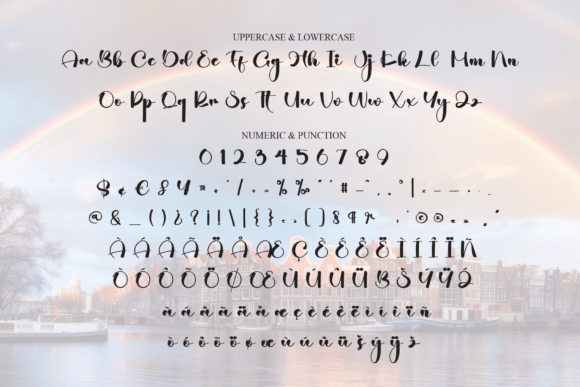 UPPERCASE & LOWERCASE
Aa Bb Cc Dd Ee Ff Gg Hh Ii Jj Kk Ll Mm Nn
Oo Pp Qq Rr Ss Tt Uu Vv Ww Xx Yy Zz
NUMERIC & PUNCTION
0 1 2 3 4 5 6 7 8 9
$ ¢ €
@ & _ ( ) ¿ ? ¡ ! \ | { }
À Á Â Ã Ä Å Æ Ç È É Ê Ë Ì Í Î Ï Ñ
Ò Ó Ô Õ Ö Ø Œ Ù Ú Û Ü ß Š Ý Ÿ Ž
à á â ã ä å æ ç è é ê ë ì í î ï ñ
ò ó ô õ ö ø œ ù ú û ü š ý ÿ ž